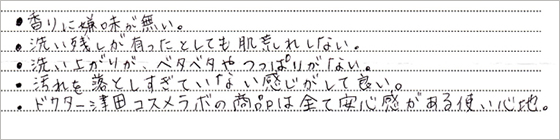 • 香りに嫌味が無い。
• 洗い残しが有ったとしても肌荒れしない。
• 洗い上がりが、ベタベタやつっぱりがない。
• 汚れを落としすぎていない感じがして良い。
• ドクター津田コスメラボの商品は全て安心感がある使い心地。